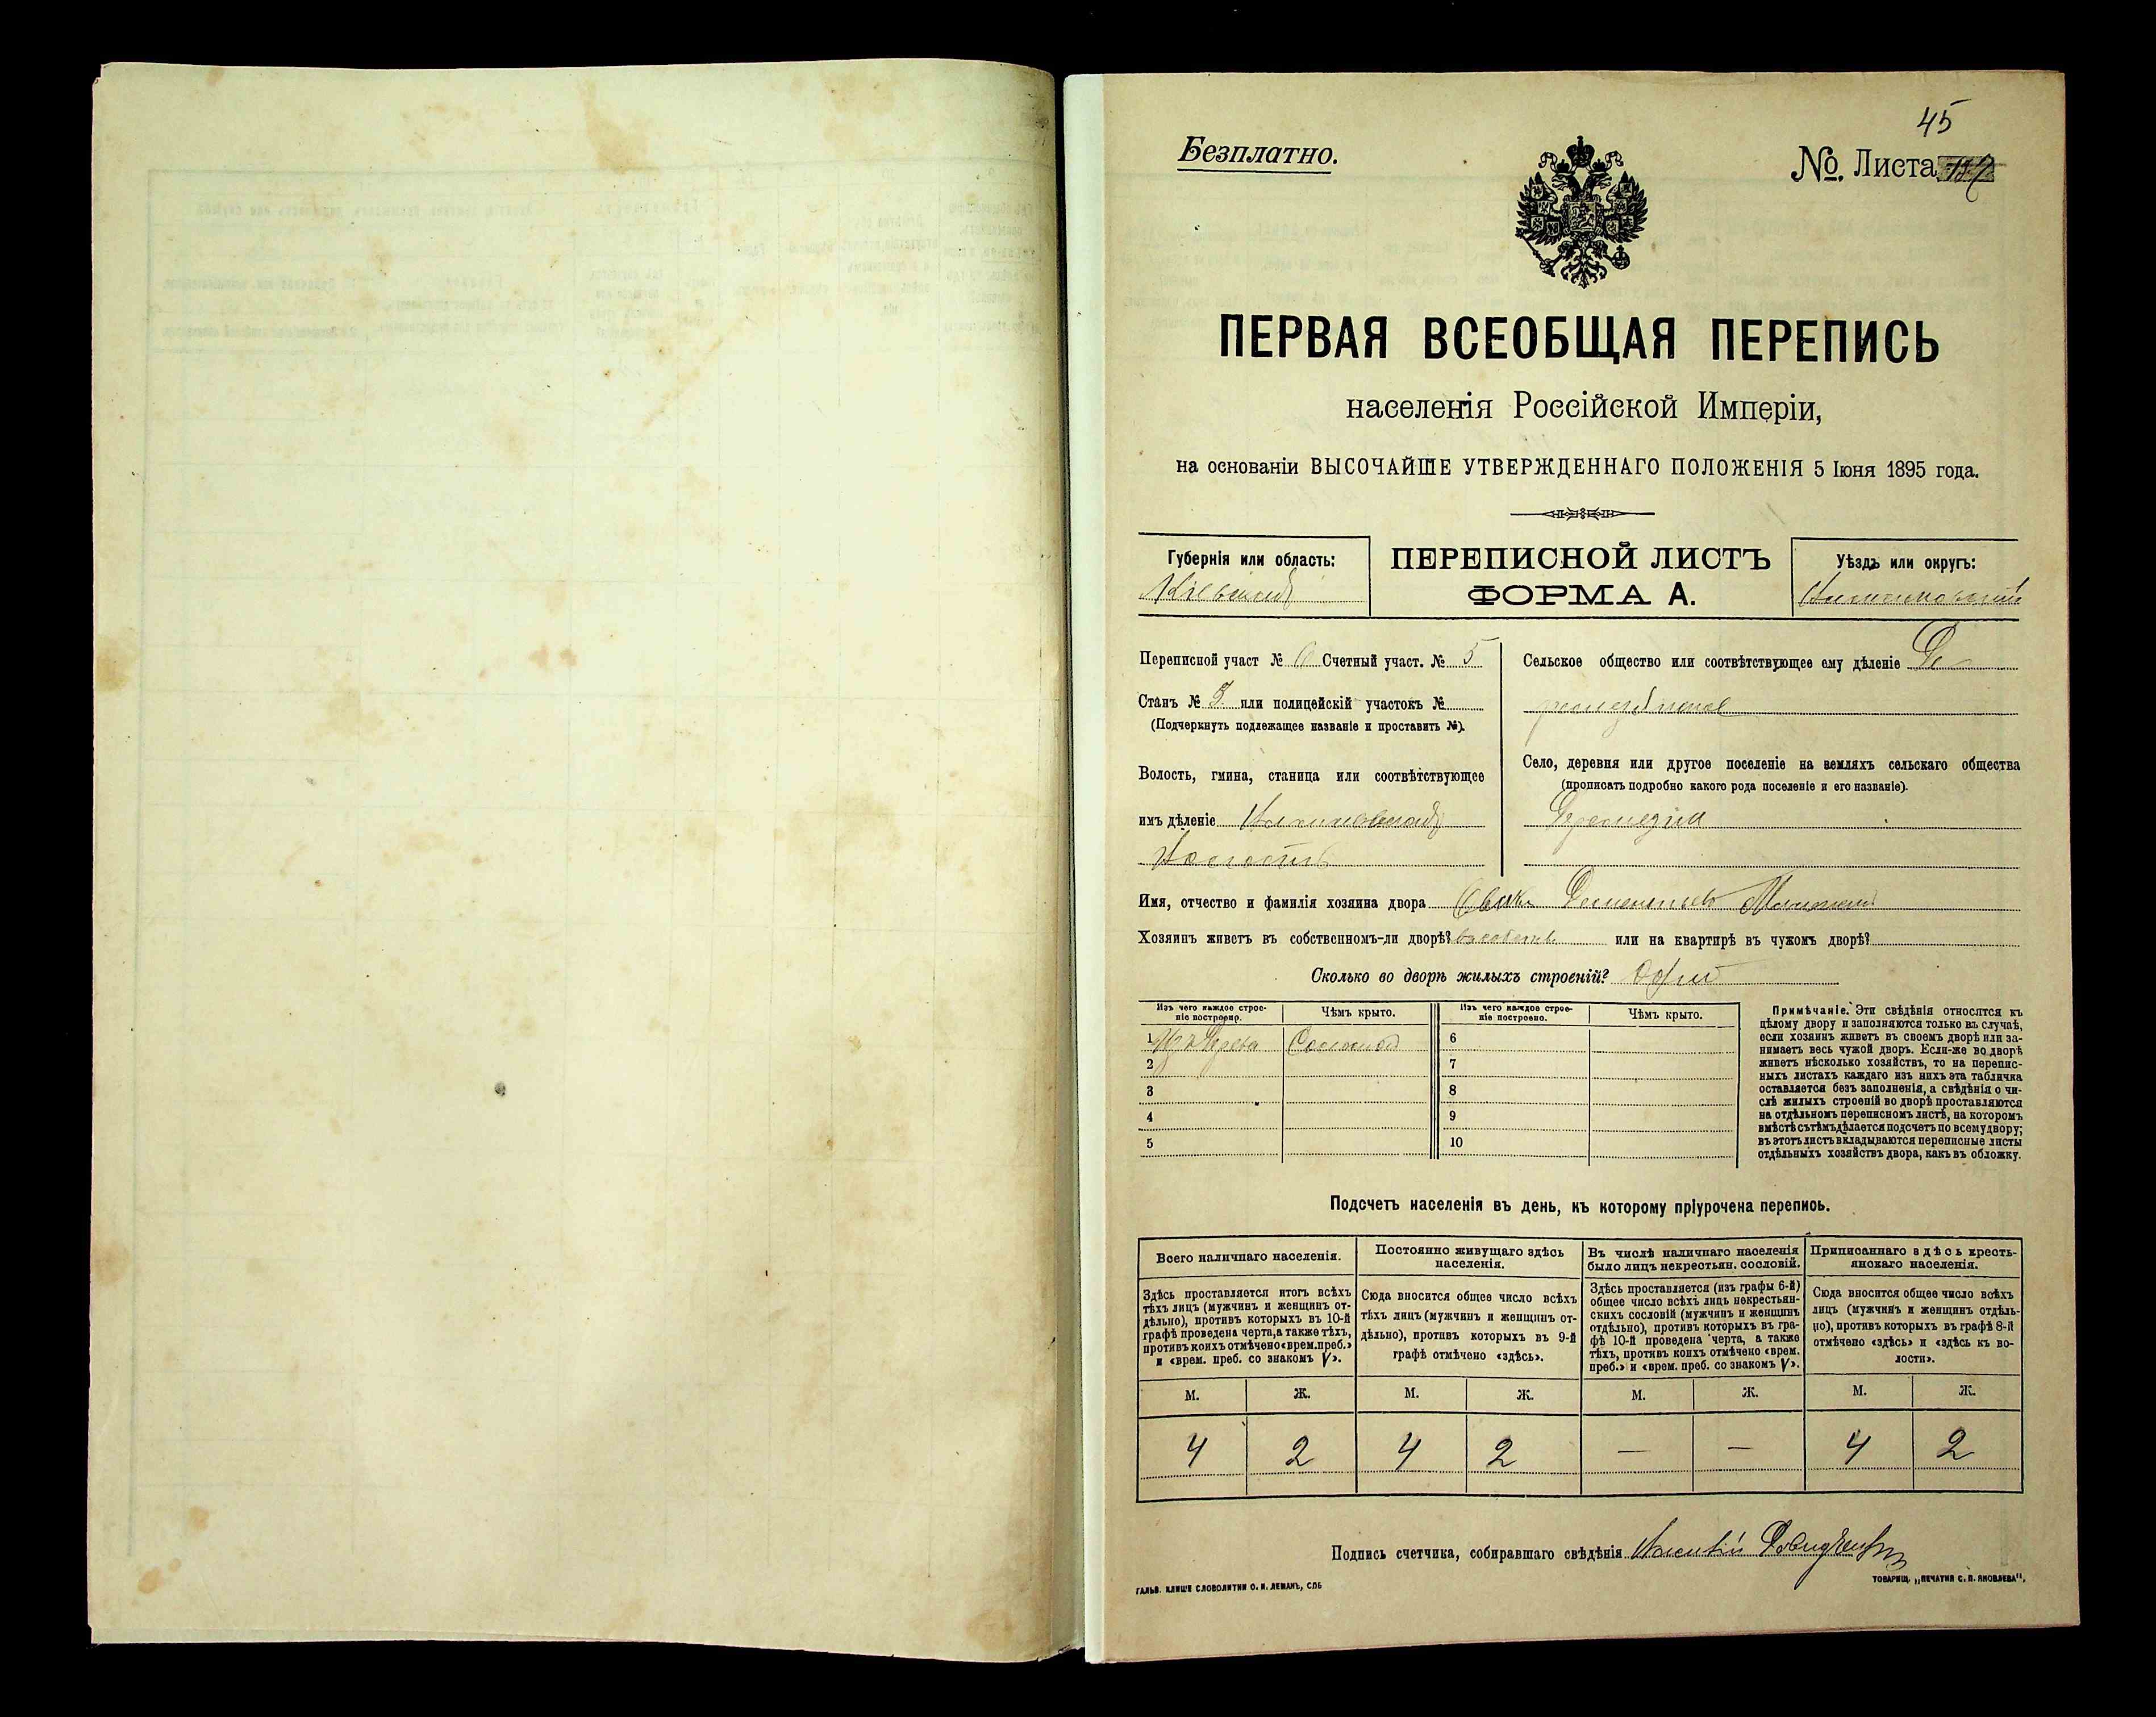 45
Безплатно.
№. Листа
ПЕРВАЯ ВСЕОБЩАЯ ПЕРЕПИСЬ
населенія Россійской Имперіи,
на основаніи ВЫСОЧАЙШЕ УТВЕРЖДЕННАГО ПОЛОЖЕНІЯ 5 Іюня 1895 года.
Губернія или область:
ПЕРЕПИСНОЙ ЛИСТЪ
ФОРМА А.
Уѣздъ или округъ:
Переписной участ № 6 Счетный участ. № 5
Станъ № 3. или полицейскій участокъ №
(Подчеркнуть подлежащее названіе и проставить №).
Волость, гмина, станица или соотвѣтствующее
имъ дѣленіе
Волость
Сельское общество или соотвѣтствующее ему дѣленіе
Село, деревня или другое поселеніе на земляхъ сельскаго общества
(прописать подробно какого рода поселеніе и его названіе).
Имя, отчество и фамилія хозяина двора
Хозяинъ живетъ въ собственномъ-ли дворѣ? или на квартирѣ въ чужомъ дворѣ?
Сколько во дворѣ жилыхъ строеній? Одно
Изъ чего каждое строе-
ніе построено.
Чѣмъ крыто.
Изъ чего каждое строе-
ніе построено.
Чѣмъ крыто.
1 Изъ дерева Соломой
2
3
4
5
6
7
8
9
10
Примѣчаніе. Эти свѣдѣнія относятся къ
цѣлому двору и заполняются только въ случаѣ,
если хозяинъ живетъ въ своемъ дворѣ или за-
нимаетъ весь чужой дворъ. Если-же во дворѣ
живетъ нѣсколько хозяйствъ, то на перепис-
ныхъ листахъ каждаго изъ нихъ эта табличка
оставляется безъ заполненія, а свѣдѣнія о чи-
слѣ жилыхъ строеній во дворѣ проставляются
на отдѣльномъ переписномъ листѣ, на которомъ
вмѣстѣ съ тѣмъ дѣлается подсчетъ по всему двору;
въ этотъ листъ вкладываются переписные листы
отдѣльныхъ хозяйствъ двора, какъ въ обложку.
Подсчетъ населенія въ день, къ которому пріурочена перепись.
Всего наличнаго населенія.
Здѣсь проставляется итогъ всѣхъ
тѣхъ лицъ (мужчинъ и женщинъ от-
дѣльно), противъ которыхъ въ 10-й
графѣ проведена черта, а также тѣхъ,
противъ коихъ отмѣчено «врем. преб.»
и «врем. преб. со знакомъ V».
Постоянно живущаго здѣсь
населенія.
Сюда вносится общее число всѣхъ
тѣхъ лицъ (мужчинъ и женщинъ от-
дѣльно), противъ которыхъ въ 9-й
графѣ отмѣчено «здѣсь».
Въ числѣ наличнаго населенія
было лицъ некрестьян. сословій.
Здѣсь проставляется (изъ графы 6-й)
общее число всѣхъ лицъ некрестьян-
скихъ сословій (мужчинъ и женщинъ
отдѣльно), противъ которыхъ въ гра-
фѣ 10-й проведена черта, а также
тѣхъ, противъ коихъ отмѣчено «врем.
преб.» и «врем. преб. со знакомъ V».
Приписаннаго здѣсь кресть-
янскаго населенія.
Сюда вносится общее число всѣхъ
лицъ (мужчинъ и женщинъ отдѣль-
но), противъ которыхъ въ графѣ 8-й
отмѣчено «здѣсь» и «здѣсь къ во-
лости».
М. Ж. М. Ж. М. Ж. М. Ж.
4 2 4 2 — — 4 2
Подпись счетчика, собиравшаго свѣдѣнія
ГАЛЬВ. КЛИШЕ СЛОВОЛИТНИ О. И. ЛЕМАНЪ, СПБ
ТОВАРИЩ. „ПЕЧАТНЯ С. П. ЯКОВЛЕВА".